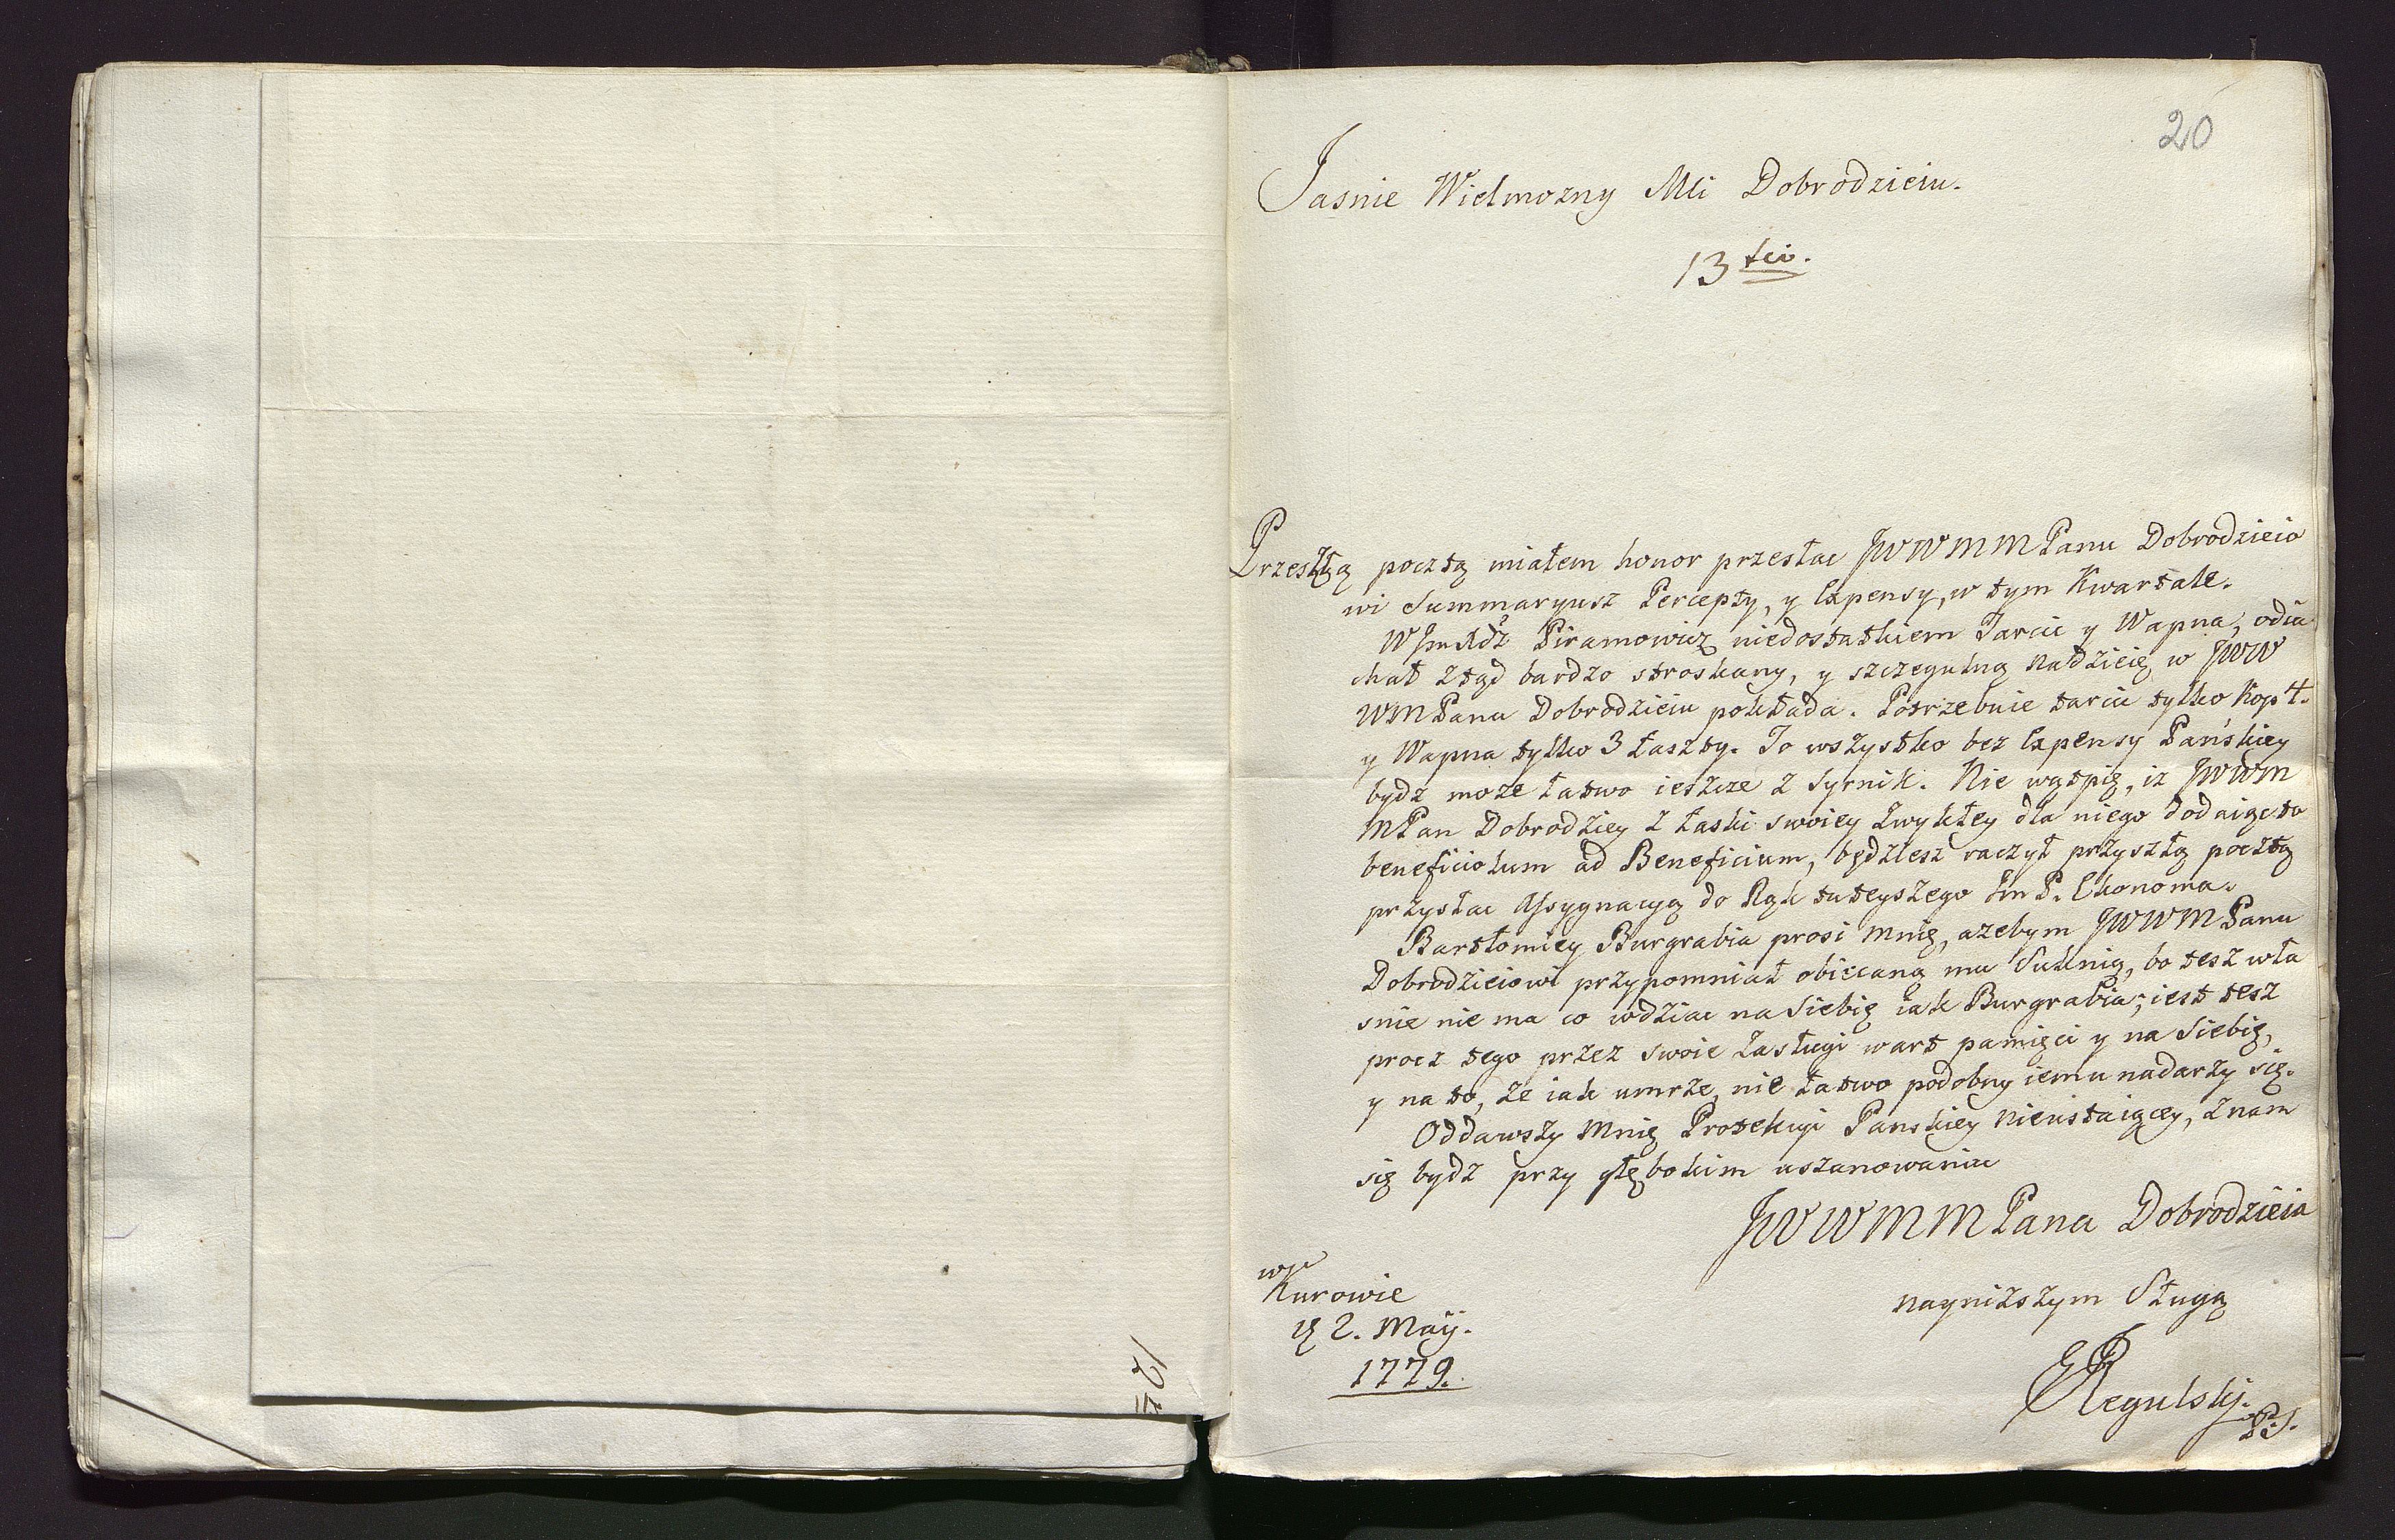 20
Jasnie Wielmozny Mci Dobrodzieiu.
13 tio.
Przeszłą pocztą miałem honor przesłac JWWMMPanu Dobrodzieio
wi Summaryusz Percepty, y Expensy, w tym Kwartale.
WJmXdz Piramowicz niedostatkiem Tarcic y Wapna, odia
chał ztąd bardzo stroskany, y szczegulną nadzieię w JWW
WMPanu Dobrodzieiu pokłada. Potrzebuie tarcic tylko Kop 4.
y Wapna tylko 3 łaszty. To wszystko bez Expensy Pańskiey
bydz moze łatwo ieszcze z Syrnik. Nie wątpię, iz JWWM
MPan Dobrodziey z łaski swoiey zwykłey dla niego dodaiąc to
beneficiolum ad Beneficium, będziesz raczył przyszłą pocztą
przysłac Assygnacyą do Rąk tuteyszego Jm P. Ekonoma.
Bartłomiey Burgrabia prosi mnię, azebym JWWMPanu
Dobrodzieiowi przypomniał obiecaną mu Suknią, bo tesz wła
snie nie ma co wdziac na siebię iak Burgrabia; iest tesz
procz tego przez swoie zasługi wart pamięci y na siebię,
y na to, ze iak umrze, nie łatwo podobny iemu nadarzy się.
Oddawszy mnię Protekcyi Panskiey nieustaiącey, znam
się bydz przy głębokim uszanowaniu
JWWMMPana Dobrodzieia
w
Kurowie
D 2. Maij.
1779.
nayniższym Sługą
Regulski.
PS.
12